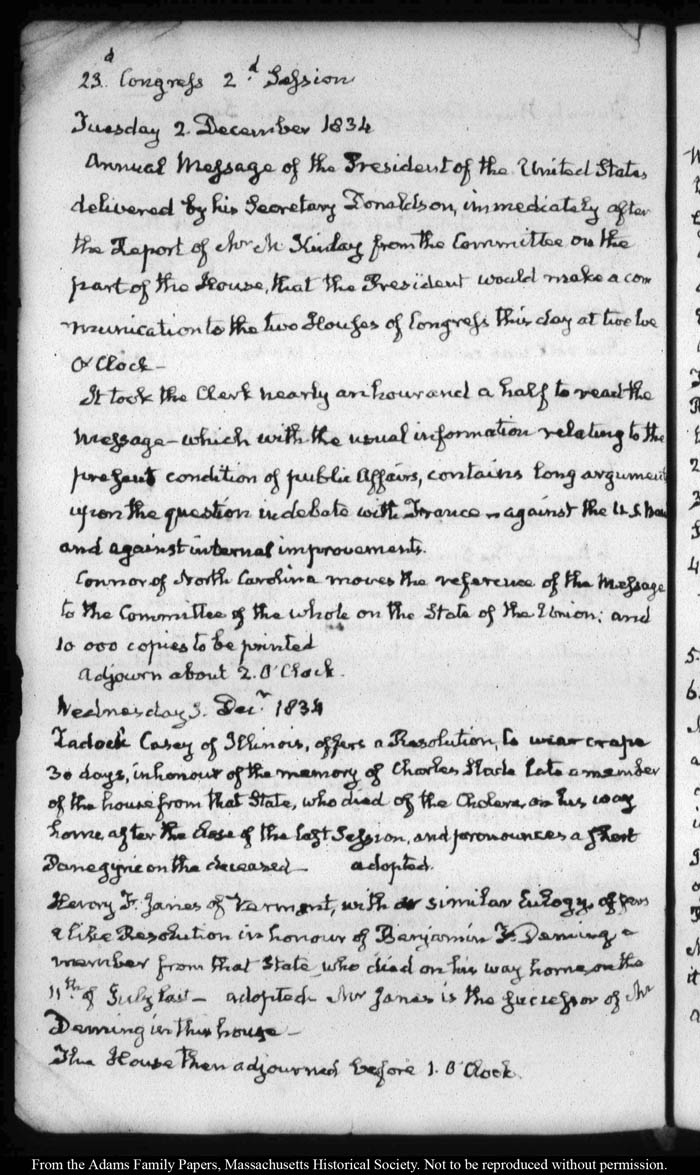 23.d Congress 2.d Session
Tuesday 2. December 1834
Annual Message of the President of the United States
delivered by his Secretary Donaldson, immediately after
the Report of Mr McKinlay from the Committee on the
part of the House, that the President would make a com
munication to the two Houses of Congress this day at twelve
O'Clock—
It took the Clerk nearly an hour and a half to read the
Message—which with the usual information relating to the
present condition of public Affairs, contains long argument
upon the question in debate with France—against the U.S. Ban
and against internal improvements.
Connor of North Carolina moves the reference of the Message
to the Committee of the whole on the State of the Union; and
10 000 copies to be printed
Adjourn about 2. O'Clock.
Wednesday 3. Decr 1834
Zadock Casey of Illinois, offers a Resolution, to wear crape
30 days, in honour of the memory of Charles Slade late a member
of the house from that State, who died of the Cholera, on his way
home, after the close of the last Session, and pronounces a short
Panegyric on the deceased— adopted.
Henry F. Janes of Vermont, with a similar Eulogy, offers
a like Resolution in honour of Benjamin F. Deming a
member from that State, who died on his way home, on the
11th of July last— adopted. Mr Janes is the successor of Mr
Deming in this house—
The House then adjourned before 1. O'Clock.
From the Adams Family Papers, Massachusetts Historical Society. Not to be reproduced without permission.